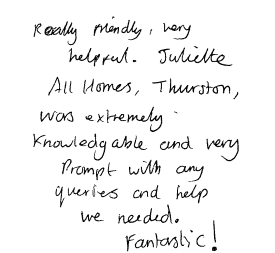 Really friendly, very
helpful. Juliette
All Homes, Thurston,
was extremely
knowledgable and very
Prompt with any
queries and help
we needed.
Fantastic!